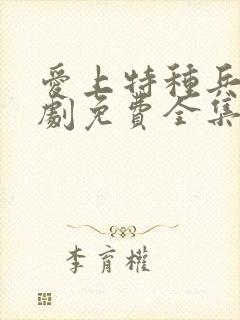 愛上特種兵
劇免費全集
李育權